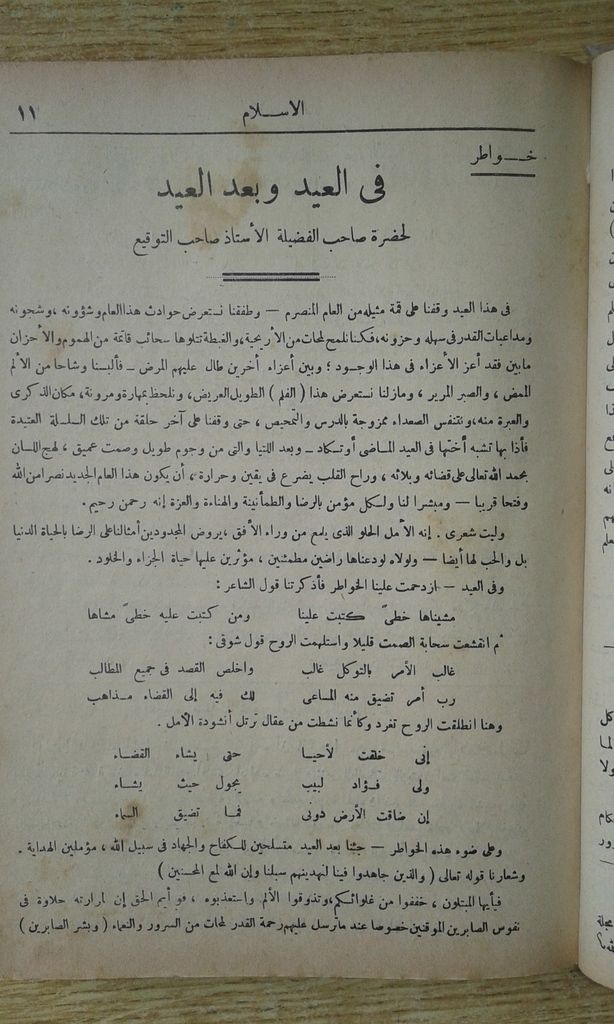 الاســـلام ١١
خــواطر
فى العيد وبعد العيد
لحضرة صاحب الفضيلة الأستاذ صاحب التوقيع
فى هذا العيد وقفنا على قمة مثيله من العام المنصرم — وطفقنا نستعرض حوادث هذا العام وشؤونه ، وشجونه
ومداعبات القدر فى سهله وحزونه ، فكنا نلمح لمحات من الأريحية ، والغبطة تتلوها سحائب قاتمة من الهموم والأحزان
مابين فقد أعز الأعزاء فى هذا الوجـود ؛ وبين أعزاء أخرين طال عليهم المرض ـ فألبسنا وشاحا من الألم
الممض ، والصبر المرير ، ومازلنا نستعرض هذا ( الفلم ) الطويل العريض ، ونلحظ بمهارة ومرونة ، مكان الذكرى
والعبرة منه ، ونتنفس الصعداء ممزوجة بالدرس والتمحيص ، حتى وقفنا على آخر حلقة من تلك السلسلة العتيدة
فأذا بها تشبه أختها فى العيد المـاضى أوتـكاد ـ وبعد اللتيا والتى من وجوم طويل وصمت عميق ، لهج اللسان
بحمد الله تعالى على قضائه وبلائه ، وراح القلب يضرع فى يقين وحرارة ، أن يكون هذا العام الجديد نصرا من الله
وفتحا قريبا — ومبشرا لنا ولـكل مؤمن بالرضا والطمأنينة والهناءة والعزة إنه رحمن رحيم .
وليت شعرى . إنه الأمل الحلو الذى يلمع من وراء الأفق ، يروض المجدودين أمثالنا على الرضا بالحياة الدنيا
بل والحب لها أيضا — ولولاه لودعناها راضين مطمئنين ، مؤثرين عليها حياة الجزاء والخلود .
وفى العيد — ازدحمت علينا الخواطر فأذكرتنا قول الشاعر :
مشيناها خطىً كتبت علينا ومن كتبت عليه خطىً مشاها
ثم انقشعت سحابة الصمت قليلا واستلهمت الروح قول شوقى :
غالب الأمر بالتوكل غالب واخلص القصد فى جميع المطالب
رب أمر تضيق منه المساعى لك فيه إلى القضاء مـذاهب
وهنا انطلقت الروح تغرد وكأنما نشطت من عقال ترتل أنشودة الأمل .
إنى خلقت لأحيـا حتى يشاء القضـاء
ولى فـؤاد لبيب يجول حيث يشـاء
إن ضاقت الأرض دونى فمـا تضيق السماء
وعلى ضوء هذه الخواطر — جئنا بعد العيد متسلحين للـكفاح والجهاد فى سبيل الله ، مؤملين الهداية .
وشعارنا قوله تعالى ( والذين جاهدوا فينا لنهدينهم سبلنا وإن الله لمع المحسنين )
فيأيها المبتلون ، خففوا من غلوائـكم ، وتذوقوا الألم واستعذبوه ، فو أيم الحق إن لمرارته حلاوة فى
نفوس الصابرين الموقنين خصوصا عند ماترسل عليهم رحمة القدر لمحات من السرور والنعماء ( وبشر الصابرين )